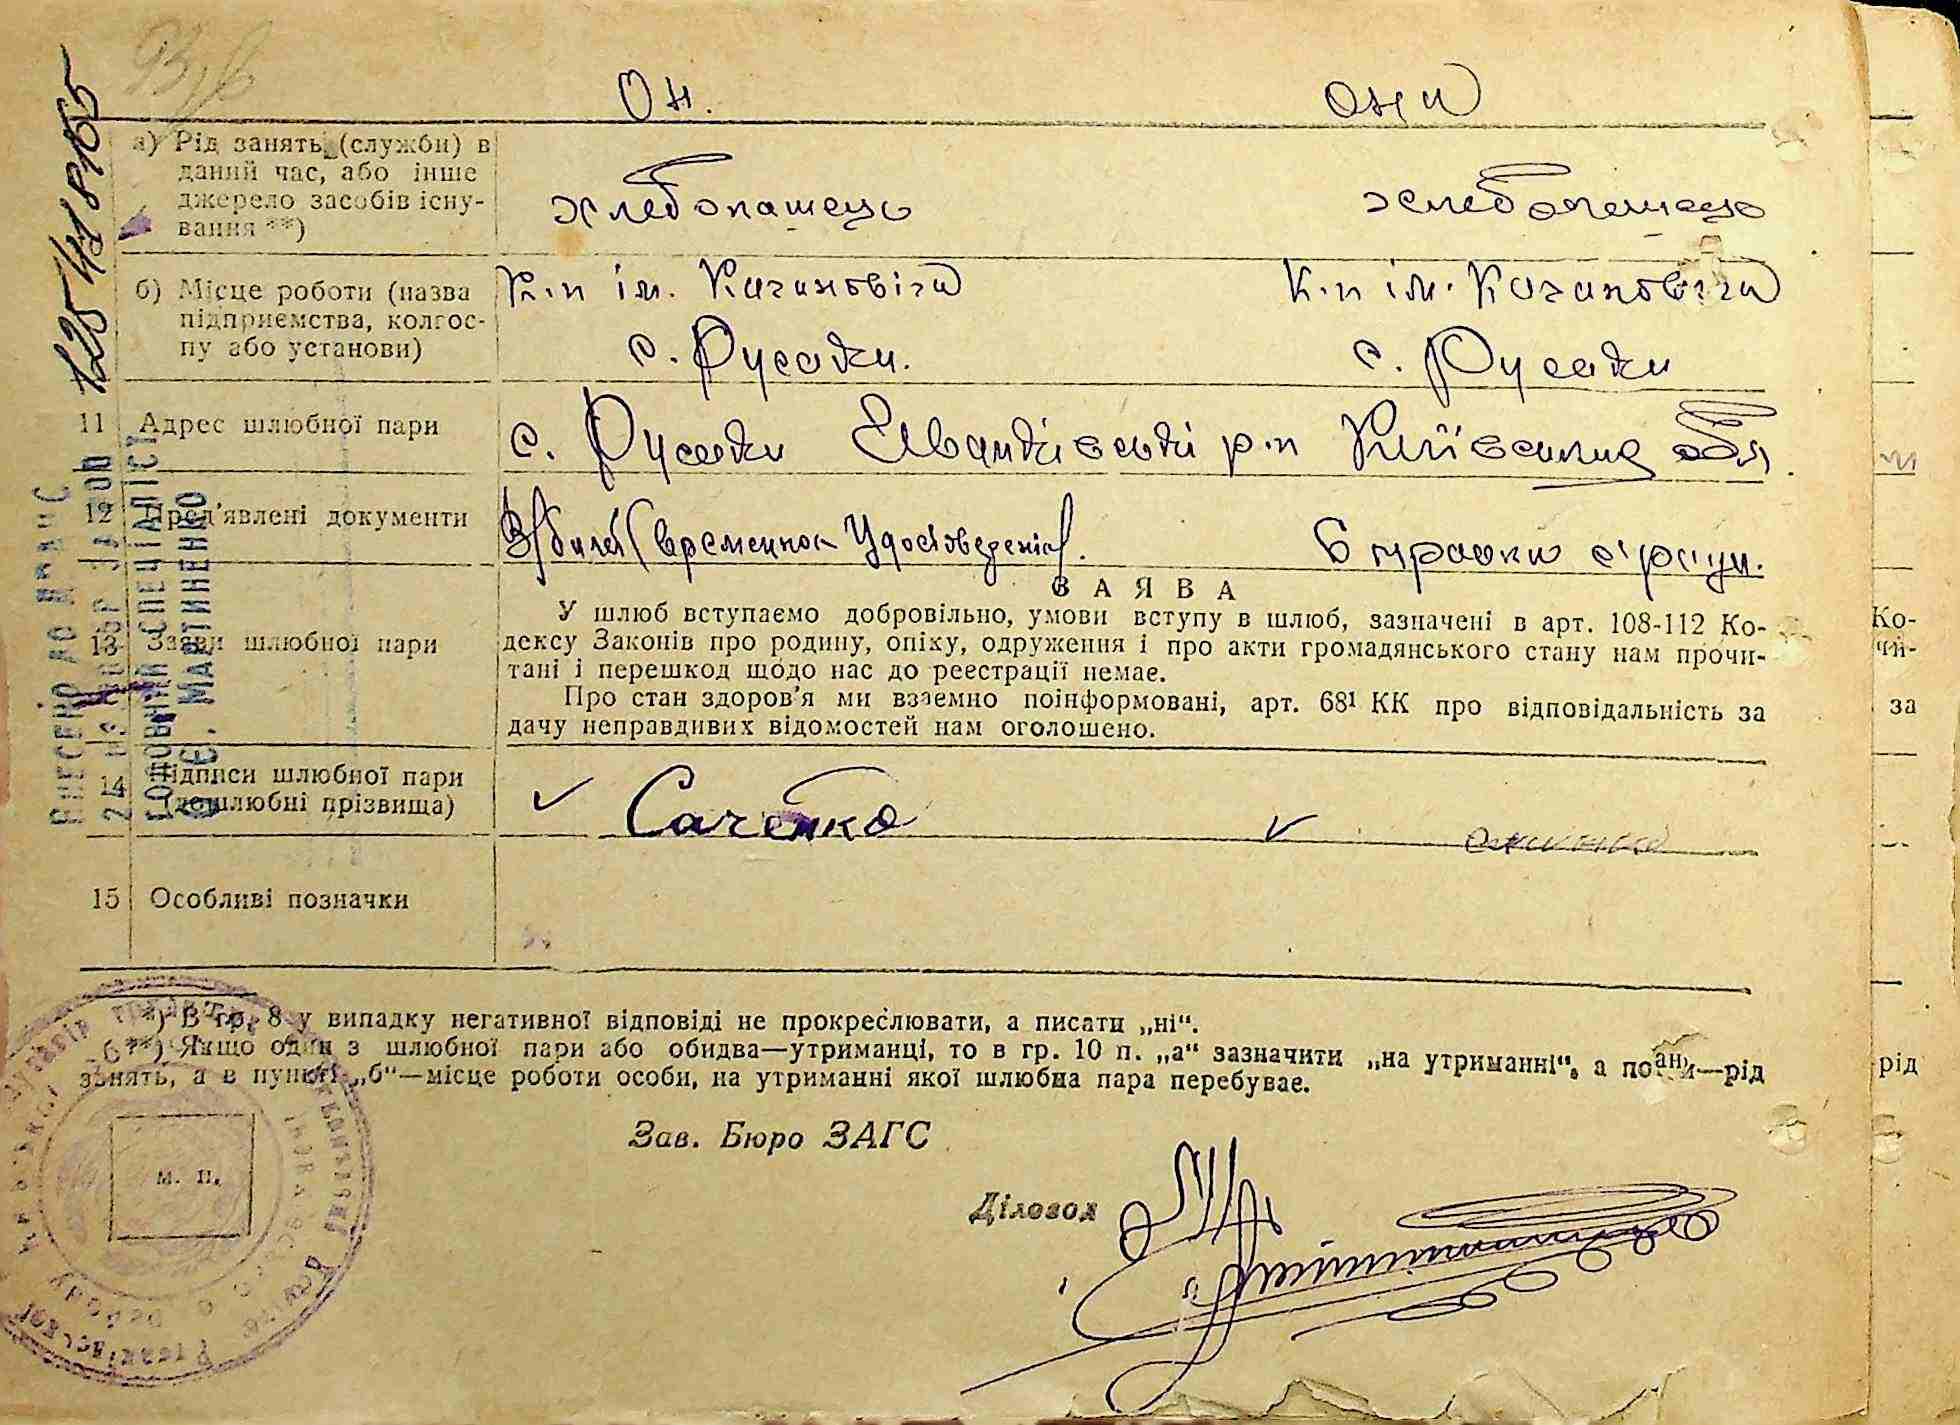 Он. Она
а) Рід занять (служби) в
даний час, або інше
джерело засобів існу-
вання **)
хлебопашець хлебопашець
б) Місце роботи (назва
підприємства, колгос-
пу або установи)
К-п ім. Кагановіча К-п ім. Кагановіча
с. Русаки. с. Русаки
11 Адрес шлюбної пари
с. Русаки Іванківські р-н Київська обл.
12 Пред'явлені документи
В/билет (временное удостоверенія). Справки с/ради.
ЗАЯВА
13 Заяви шлюбної пари
У шлюб вступаємо добровільно, умови вступу в шлюб, зазначені в арт. 108-112 Ко-
дексу Законів про родину, опіку, одруження і про акти громадянського стану нам прочи-
тані і перешкод щодо нас до реестрації немає.
Про стан здоров'я ми взаємно поінформовані, арт. 68¹ КК про відповідальність за
дачу неправдивих відомостей нам оголошено.
14 Підписи шлюбної пари
(дошлюбні прізвища)
Саченко
15 Особливі позначки
*) В гр. 8 у випадку негативної відповіді не прокреслювати, а писати „ні“.
**) Якщо один з шлюбної пари або обидва—утриманці, то в гр. 10 п. „а“ зазначити „на утриманні“, а
занять, а в пункті „б“—місце роботи особи, на утриманні якої шлюбна пара перебуває.
м. п.
Зав. Бюро ЗАГС
Діловод
ВНЕСЕНО ДО ДРАЦС
ГОЛОВНИЙ СПЕЦІАЛІСТ
О.Є. МАРТИНЕНКО
Ко-
чи-
за
рід